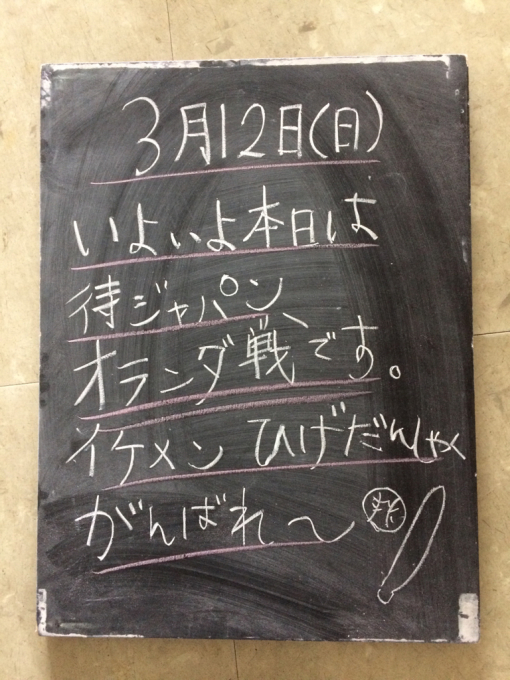 3月12日(日)
いよいよ本日は
待ジャパン、
オランダ戦です。
イケメン ひげだんしゃく
がんばれ〜